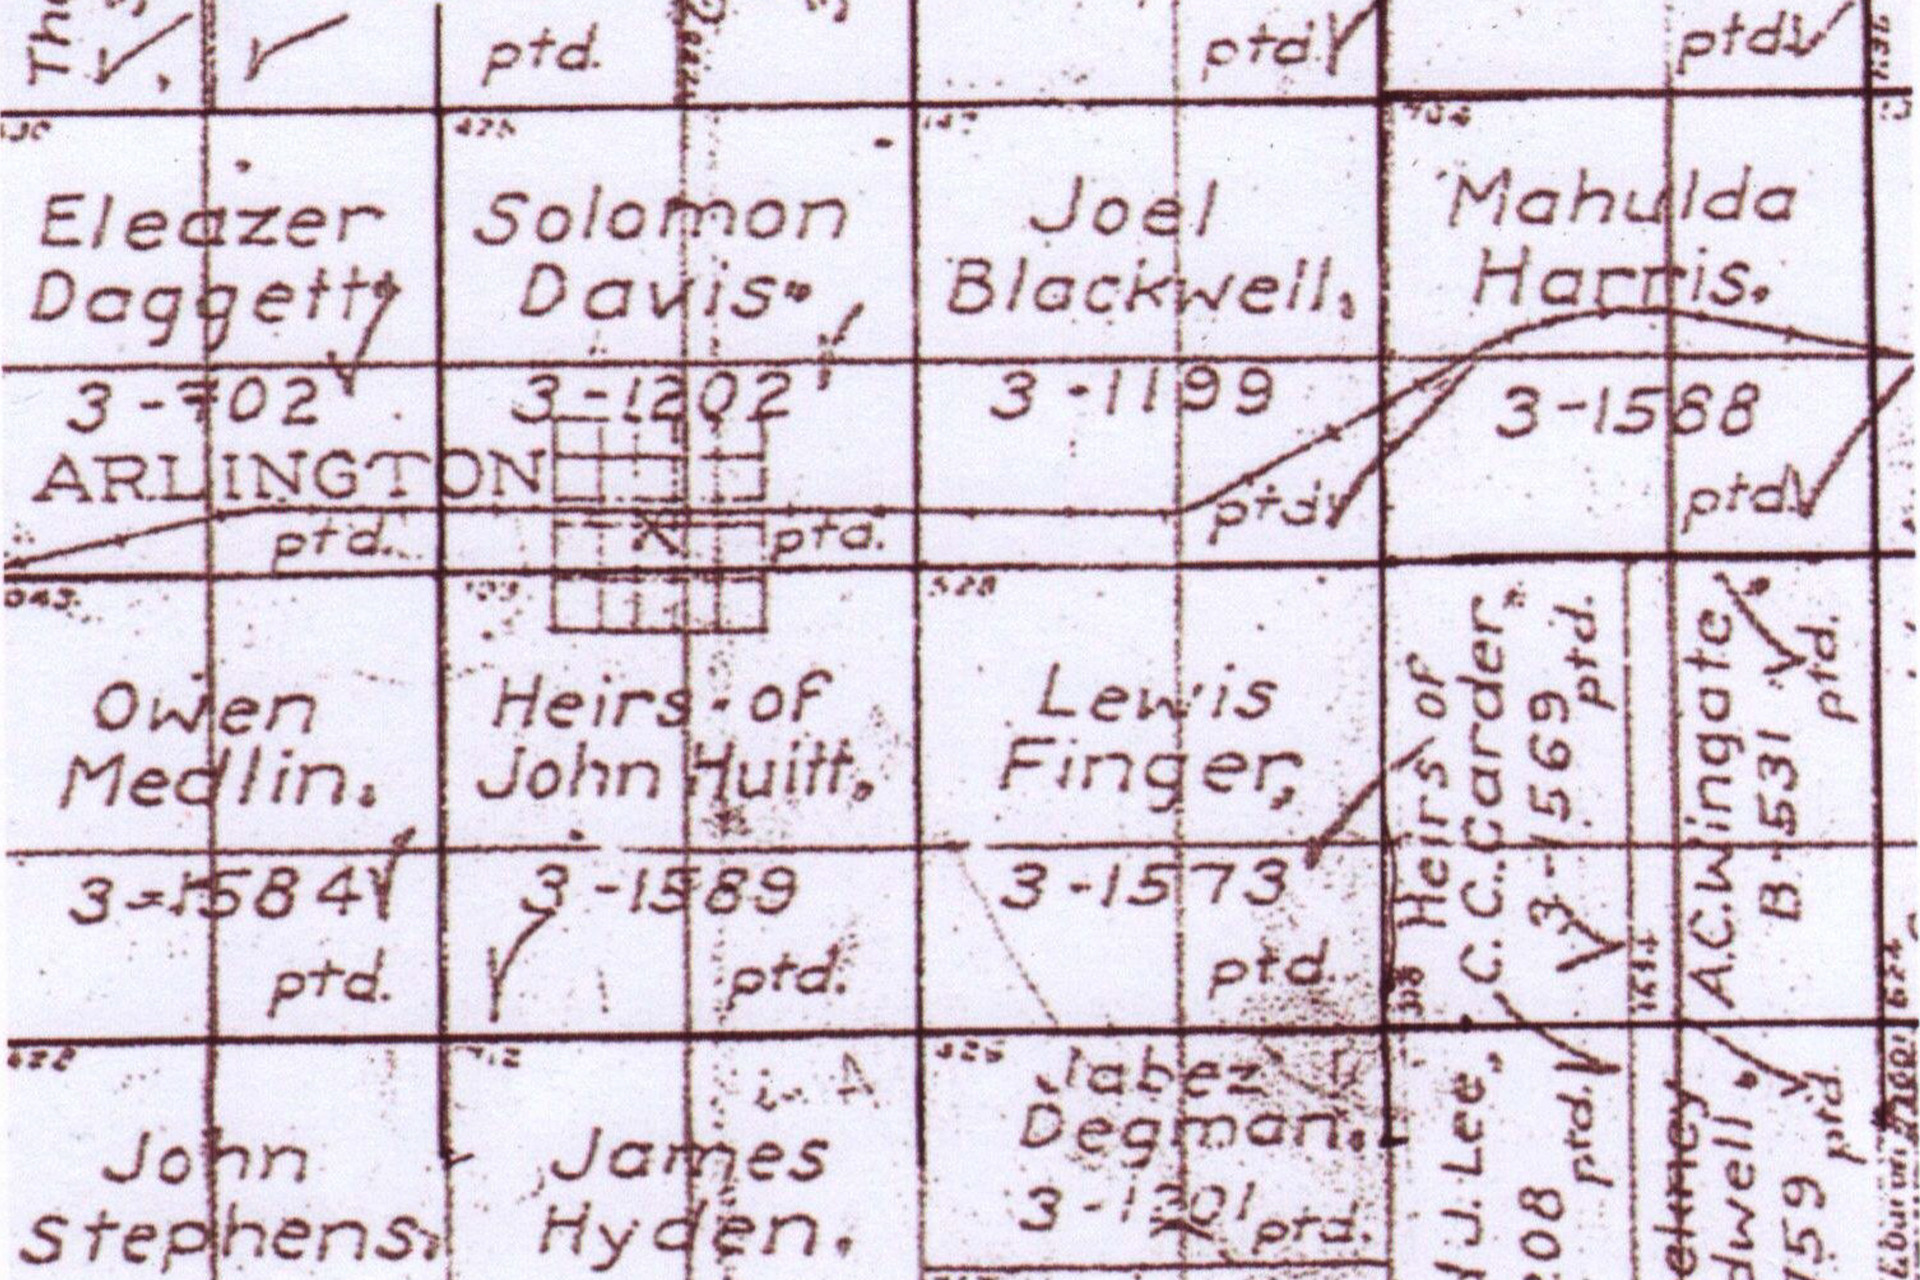 ptd.
ptd.
ptd.
Eleazer
Daggett,
3-702
ARLINGTON
ptd.
Solomon
Davis.
3-1202
ptd.
147
Joel
Blackwell,
3-1199
ptd.
704
Mahulda
Harris.
3-1588
ptd.
Owen
Medlin.
3-1584
ptd.
Heirs of
John Huitt.
3-1589
ptd.
528
Lewis
Finger,
3-1573
ptd.
Heirs of
C.C.Carder,
3-1569
ptd.
A.C.Wingate,
B-531
ptd.
John
Stephens.
James
Hyden.
Jabez
Degman.
3-1201
ptd.
J. Lee,
ptd.
ptd.